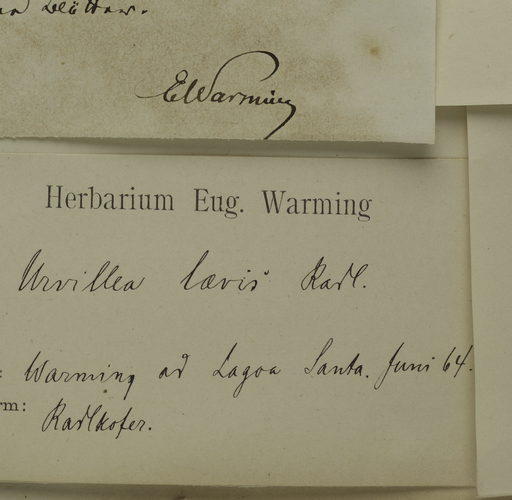 Blätter.
EWarming
Herbarium Eug. Warming
Urvillea lævis Radl.
: Warming ad Lagoa Santa. Juni 64.
rm: Radlkofer.